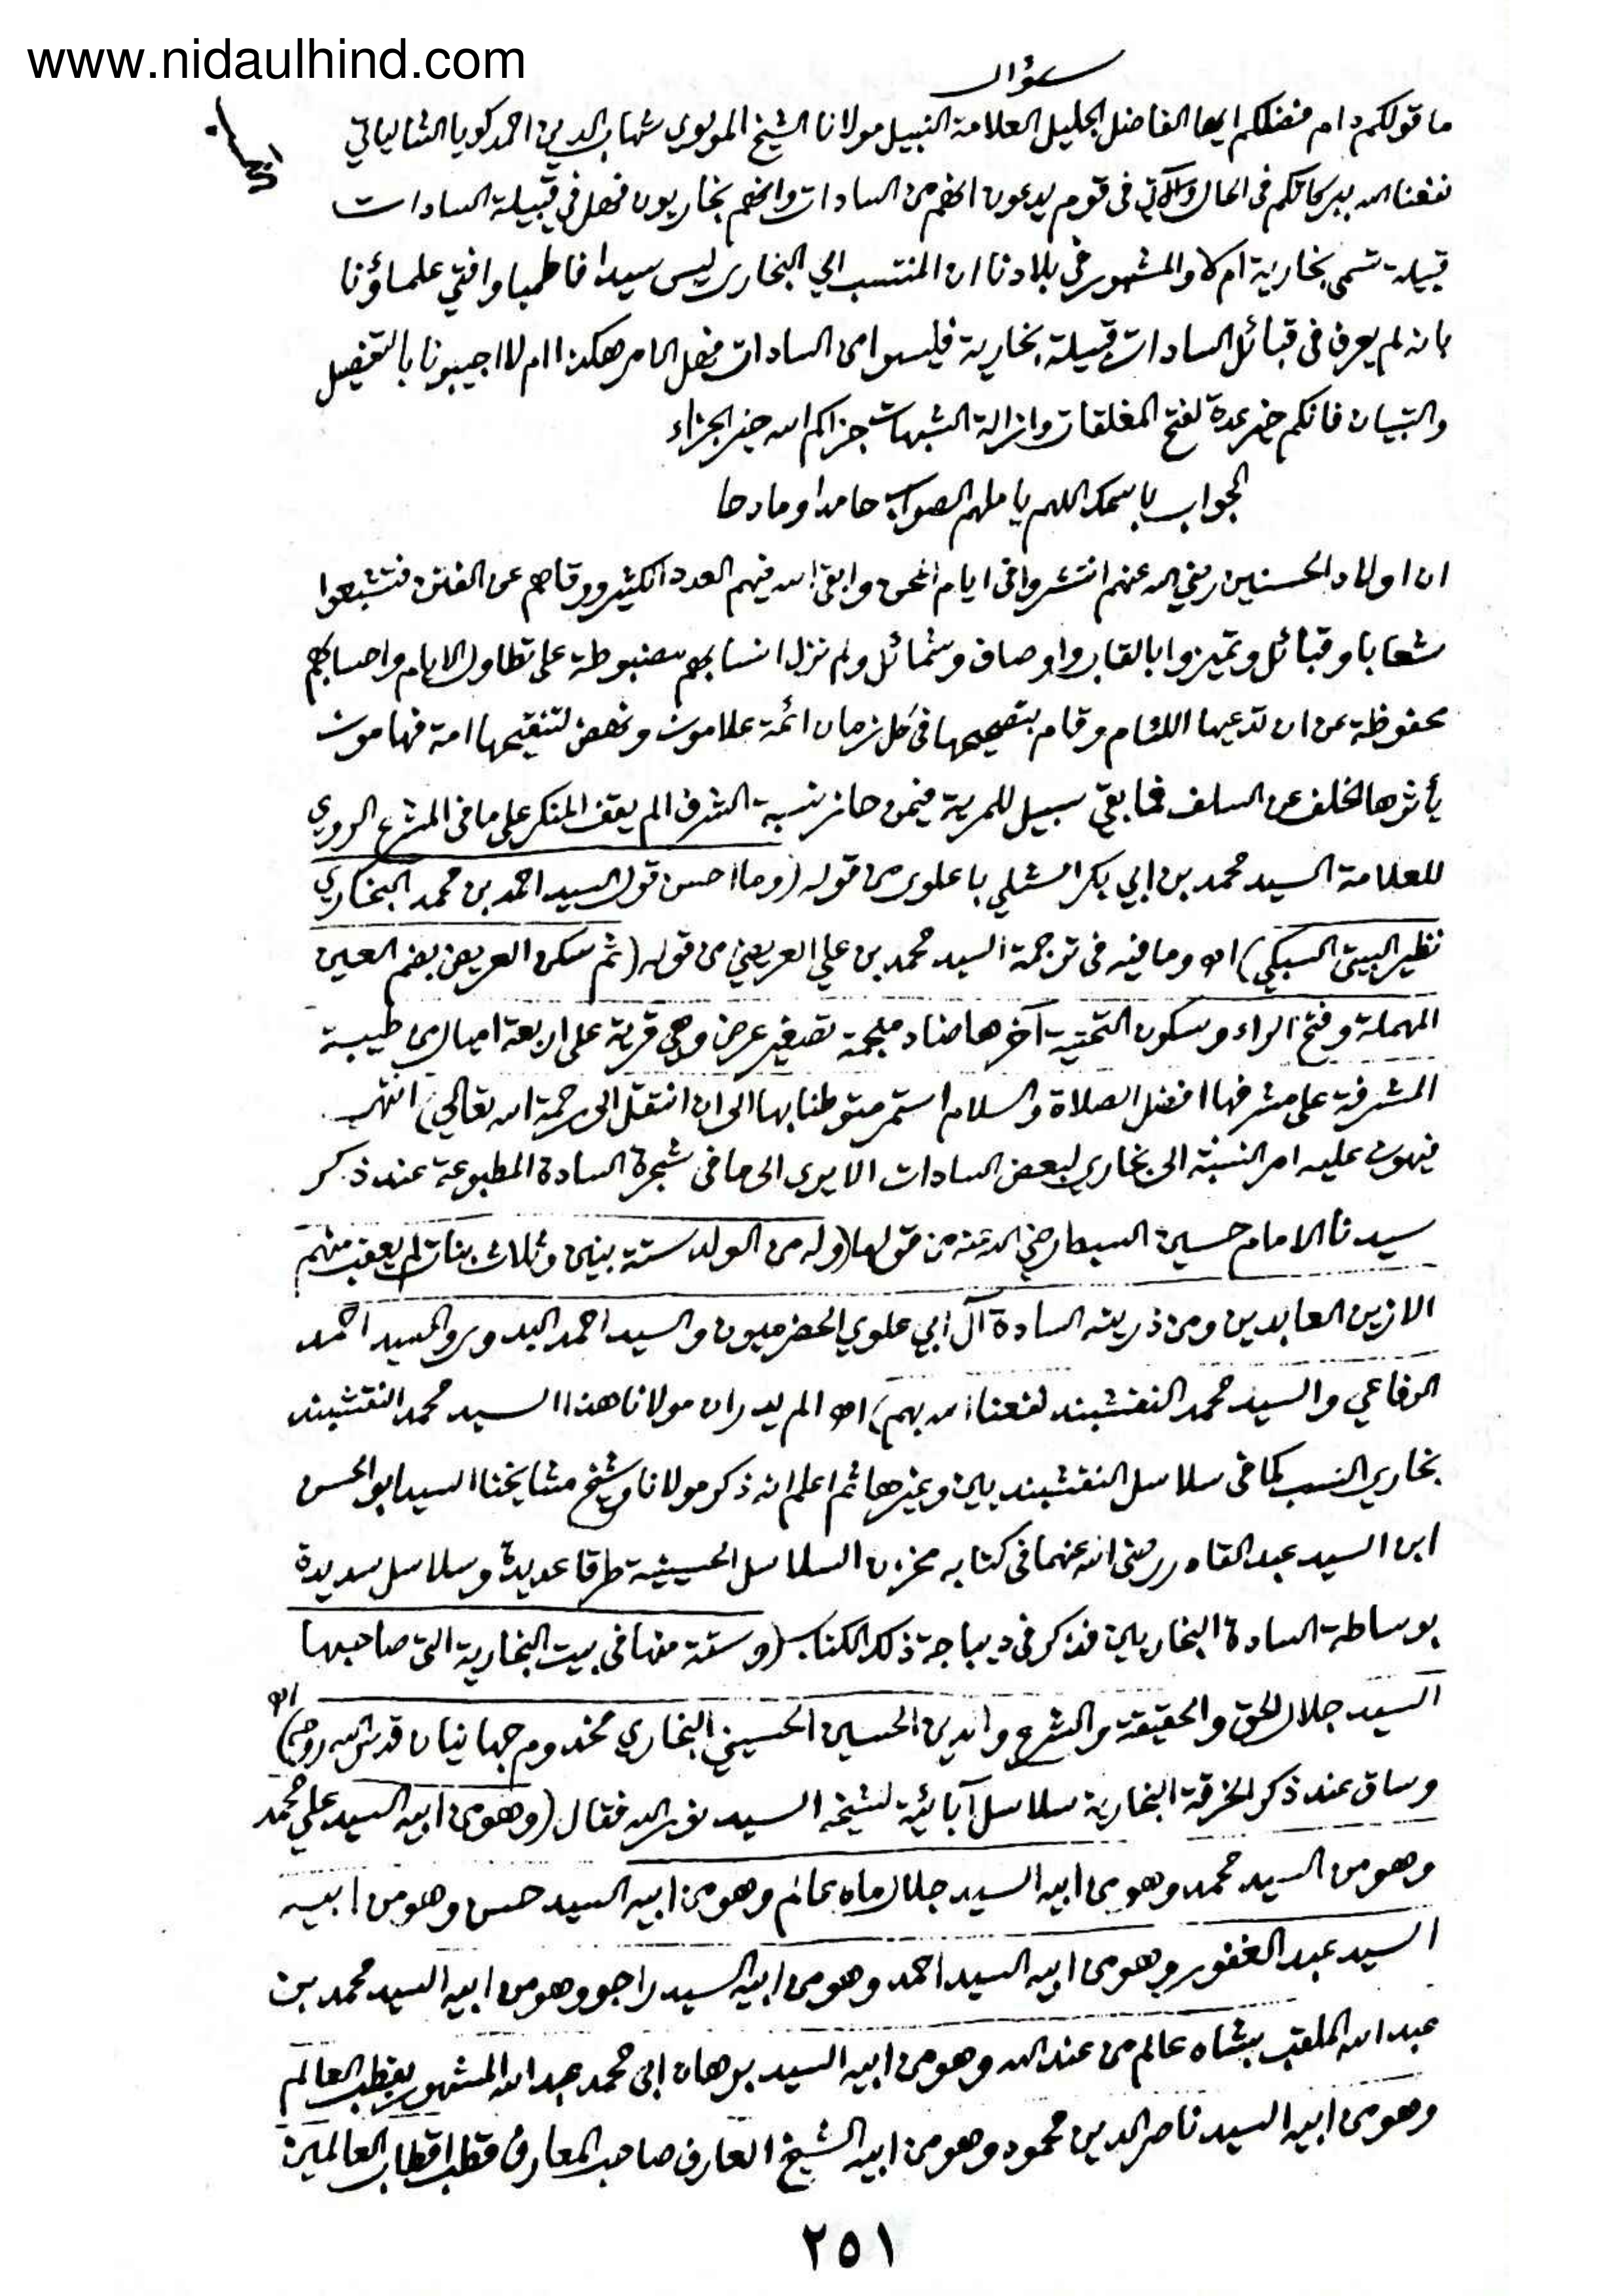 www.nidaulhind.com
سؤال
ما قولكم دام فضلكم ايها الفاضل الجليل العلامة النبيل مولانا الشيخ المولوي شهاب الدين احمد كويا الشالياتي
نفعنا الله ببركاتكم في الحال والآتي في قوم يدعون انهم من السادات وانهم بخاريون فهل في قبيلة السادات
قبيلة تسمى بخارية ام لا والمشهور في بلادنا ان المنتسب الي البخارى ليس سيدا فاطميا وافتي علماؤنا
بانه لم يعرف في قبائل السادات قبيلة بخارية فليسوا من السادات فهل الامر هكذا ام لا اجيبونا بالتفصيل
والتبيان فانكم خير عدة لفتح المغلقات وازالة الشبهات جزاكم الله خير الجزاء
الجواب باسمك اللهم يا ملهم الصواب حامدا ومادحا
ان اولاد الحسنين رضي الله عنهم انتشروا في ايام المحن وابقى الله فيهم العدد الكثير ووقاهم عن الفتن فتشبعوا
شعابا وقبائل وتميزوا بالقاب واوصاف وشمائل ولم تزل انسابهم مضبوطة على تطاول الايام واحسابهم
محفوظة عن ان تدعيها اللئام وقام بتصحيحها في كل زمان ائمة علامون ونهض لتنقيحها امة فهامون
يأثرها الخلف عن السلف فما بقي سبيل للمرية فيمن حاز نسبة الشرف الم يقف المنكر على ما في المشرع الروي
للعلامة السيد محمد بن ابي بكر الشلي باعلوى من قوله (وما احسن قول السيد احمد بن محمد البخاري
نظير البيتى السبكي) اه وما فيه في ترجمة السيد محمد بن علي العريضي من قوله (ثم سكن العريض بضم العين
المهملة وفتح الراء وسكون التحتية آخرها ضاد معجمة تصغير عرض وهي قرية على اربعة اميال من طيبة
المشرفة على مشرفها افضل الصلاة والسلام استمر متوطنا بها الى ان انتقل الى رحمة الله تعالي) انتهى
فيهون عليه امر النسبة الى بخاري لبعض السادات الا يرى الى ما في شجرة السادة المطبوعة عند ذكر
سيدنا الامام حسين السبط رضي الله عنه من قولها (وله من الولد ستة بنين وثلاث بنات لم يعقب منهم
الا زين العابدين ومن ذريته السادة آل ابي علوي الحضرميون والسيد احمد البدوي والسيد احمد
الرفاعي والسيد محمد النقشبند نفعنا الله بهم) اه الم يدر ان مولانا هذا السيد محمد النقشبند
بخاري النسب كما في سلاسل النقشبنديين وغيرها ثم اعلم انه ذكر مولانا وشيخ مشايخنا السيد ابو الحسن
ابن السيد عبد القادر رضى الله عنهما في كتابه مخزن السلاسل الحسينية طرقا عديدة وسلاسل سديدة
بوساطة السادة البخاريين فذكر في ديباجة ذلك الكتاب (وستة منها في بيت البخارية التى صاحبها
السيد جلال الحق والحقيقة والشرع والدين الحسين الحسيني البخاري مخدوم جهانيان قدس الله روحه) اه
وساق عند ذكر الخرقة البخارية سلاسل آبائية لشيخه السيد نور الله فقال (وهو من ابيه السيد علي محمد
وهو من السيد محمد وهو من ابيه السيد جلال ماه عالم وهو من ابيه السيد حسن وهو من ابيه
السيد عبد الغفور وهو من ابيه السيد احمد وهو من ابيه السيد راجو وهو من ابيه السيد محمد بن
عبد الله الملقب بشاه عالم من عند الله وهو من ابيه السيد برهان ابي محمد عبد الله المشهور بقطب العالم
وهو من ابيه السيد ناصر الدين محمود وهو من ابيه الشيخ العارف صاحب المعارف قطب اقطاب العالمين
٢٥١